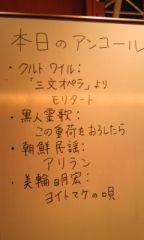 本日のアンコール
・クルト・ワイル:
「三文オペラ」より
モリタート
・黒人霊歌:
この重荷をおろしたら
・朝鮮民謡:
アリラン
・美輪明宏:
ヨイトマケの唄